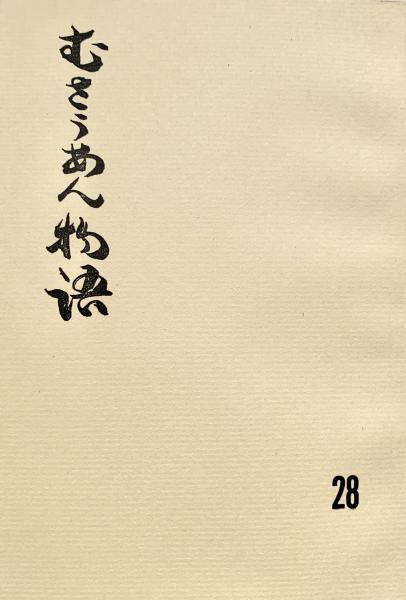 むさうあん物語
28